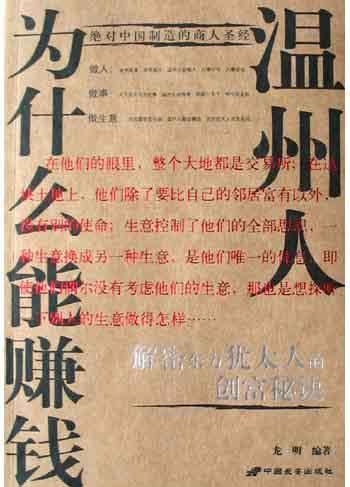 温州人
为什么能赚钱
绝对中国制造的商人圣经
做人：
做事
做生意
在他们的眼里，整个大地都是交易所；在这
块土地上，他们除了要比自己的邻居富有以外，
没有别的使命；生意控制了他们的全部思想，一
种生意换成另一种生意，是他们唯一的休息，即
使他们偶尔没有考虑他们的生意，那也是想探听
一下别人的生意做得怎样……
解密东方犹太人的
创富秘诀
龙 明 编著
中国长安出版社